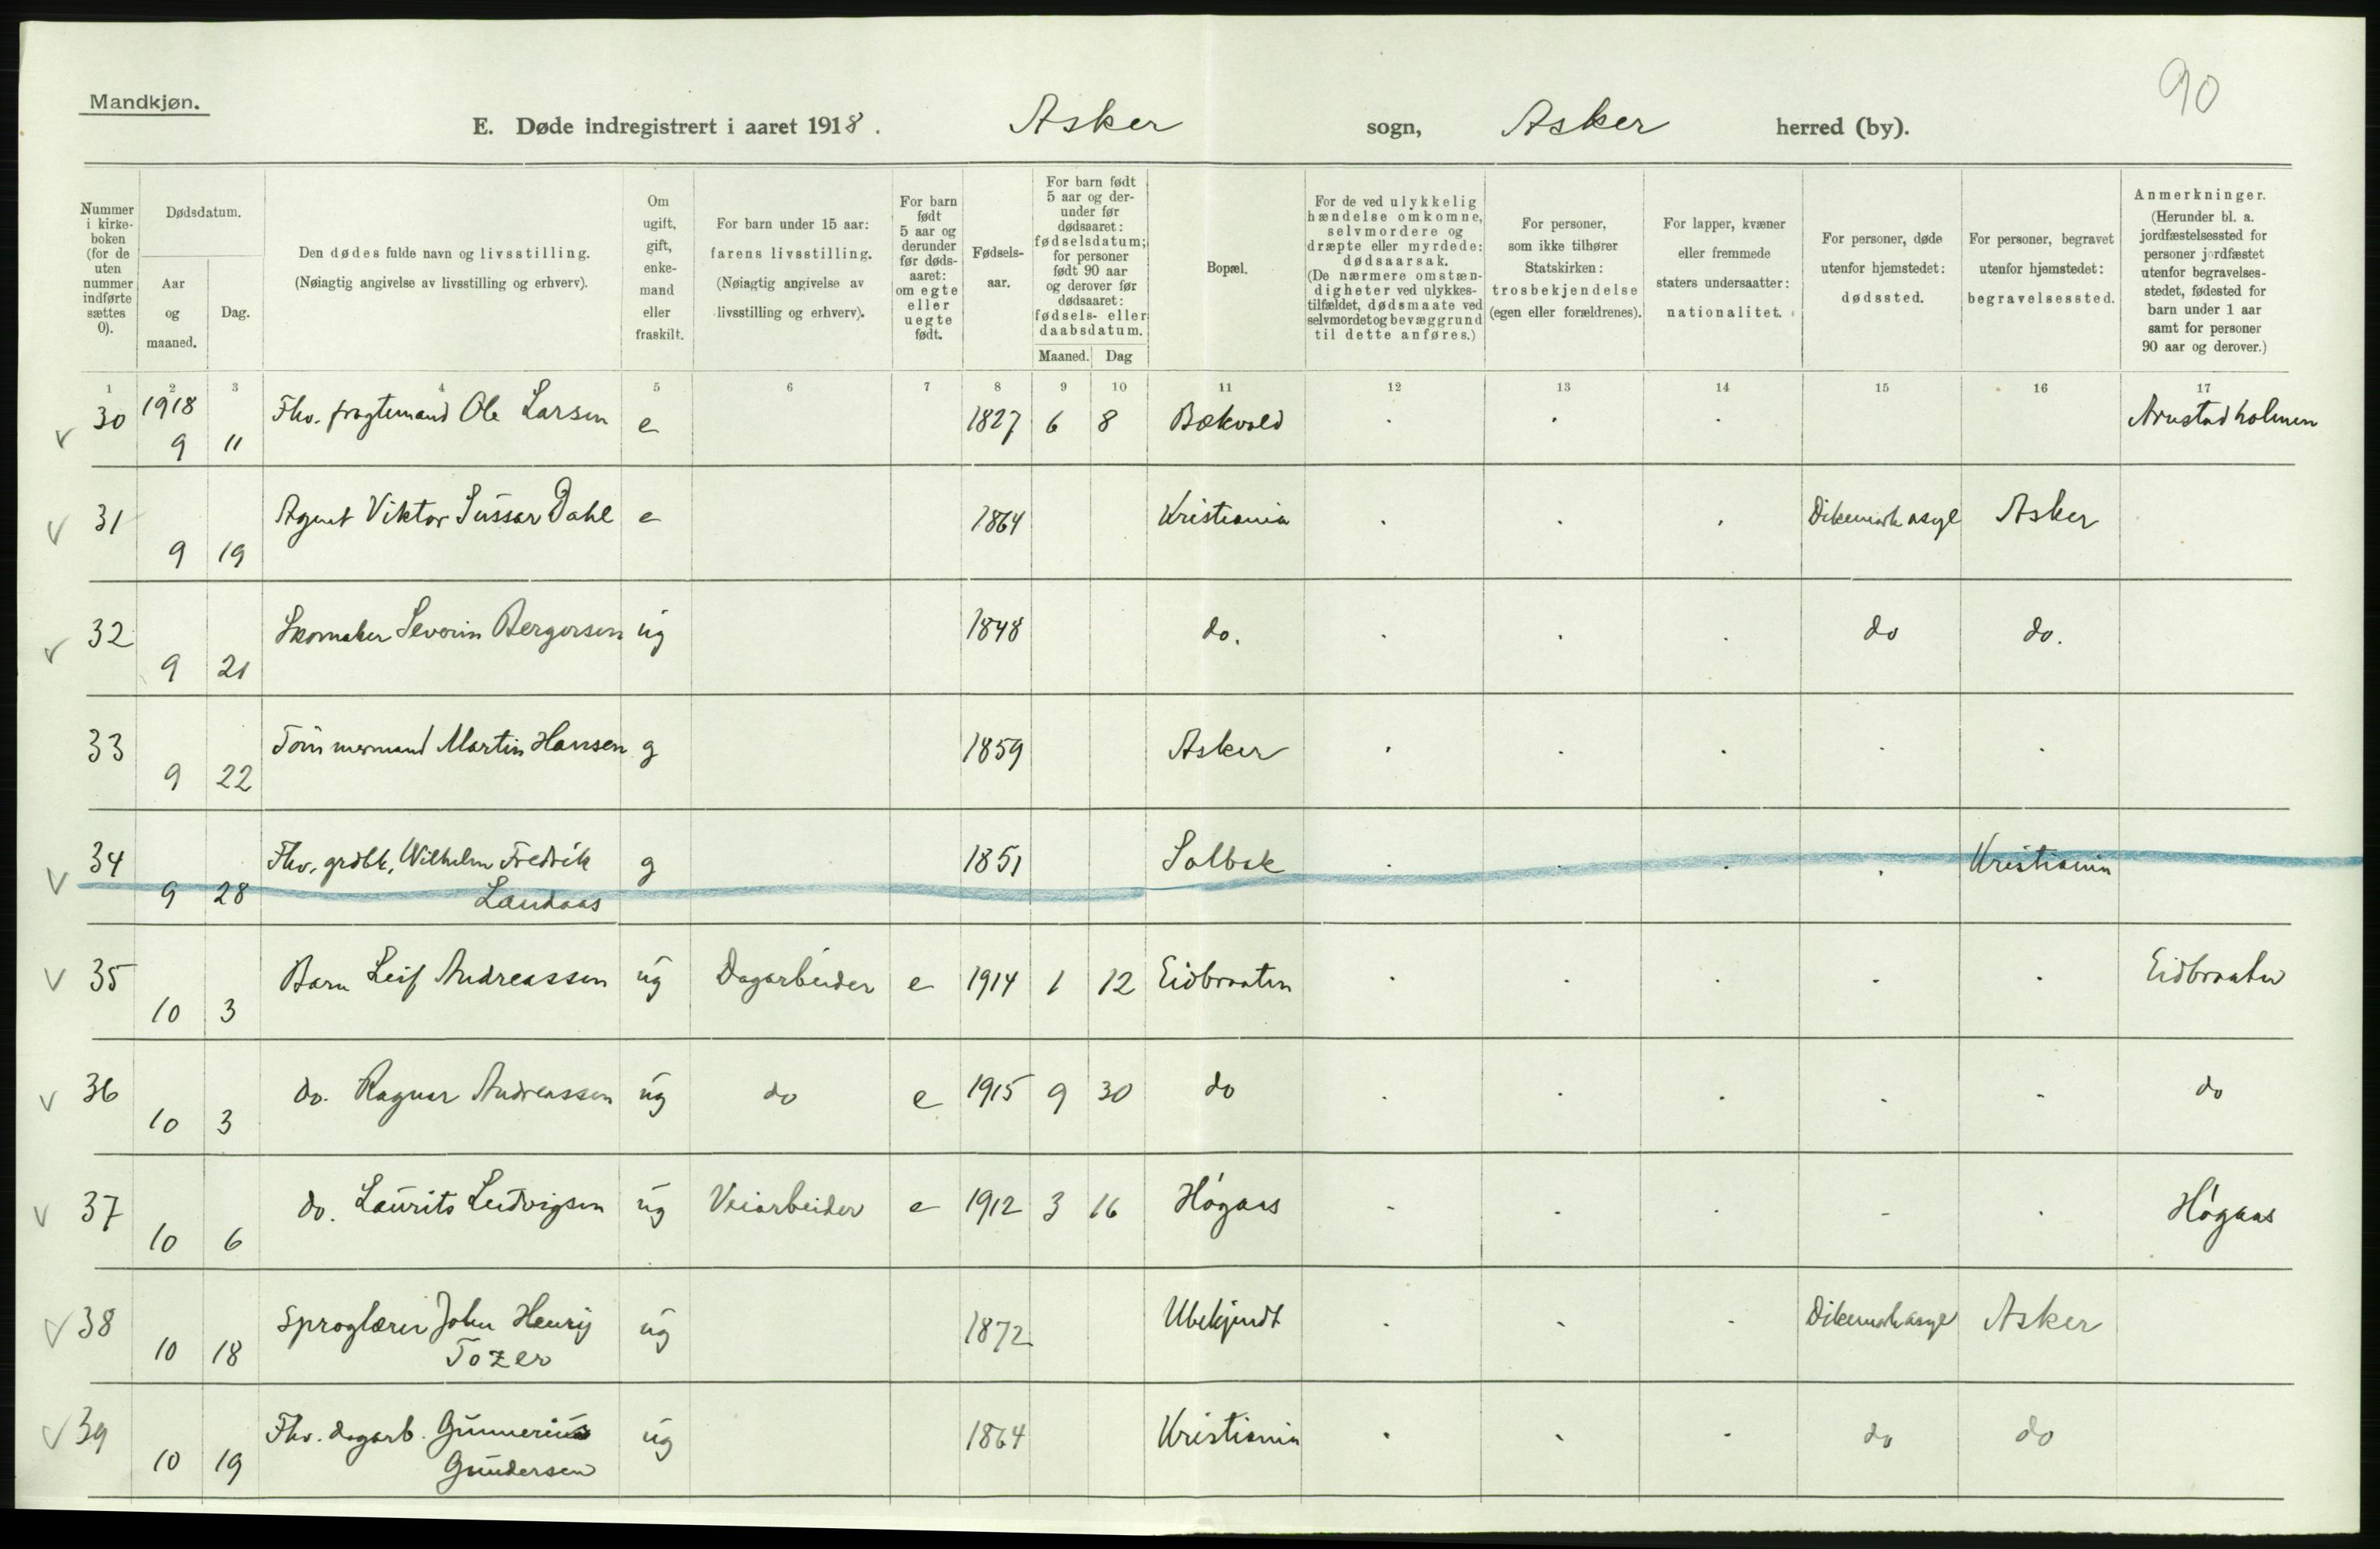 90
Mandkjøn.
E. Døde indregistrert i aaret 1918. Asker sogn, Asker herred (by).
Nummer
i kirke-
boken
(for de
uten
nummer
indførte
sættes
0).
Dødsdatum.
Aar
og
maaned.
Dag.
Den dødes fulde navn og livsstilling.
(Nøiagtig angivelse av livsstilling og erhverv).
Om
ugift,
gift,
enke-
mand
eller
fraskilt.
For barn under 15 aar:
farens livsstilling.
(Nøiagtig angivelse av
livsstilling og erhverv).
For barn
født
5 aar og
derunder
før døds-
aaret:
om egte
eller
uegte
født.
Fødsels-
aar.
For barn født
5 aar og der-
under før
dødsaaret:
fødselsdatum;
for personer
født 90 aar
og derover før
dødsaaret:
fødsels- eller
daabsdatum.
Maaned. Dag
Bopæl.
For de ved ulykkelig
hændelse omkomne,
selvmordere og
dræpte eller myrdede:
dødsaarsak.
(De nærmere omstæn-
digheter ved ulykkes-
tilfældet, dødsmaate ved
selvmordet og bevæggrund
til dette anføres.)
For personer,
som ikke tilhører
Statskirken:
trosbekjendelse
(egen eller forældrenes).
For lapper, kvæner
eller fremmede
staters undersaatter:
nationalitet.
For personer, døde
utenfor hjemstedet:
dødssted.
For personer, begravet
utenfor hjemstedet:
begravelsessted.
Anmerkninger.
(Herunder bl. a.
jordfæstelsessted for
personer jordfæstet
utenfor begravelses-
stedet, fødested for
barn under 1 aar
samt for personer
90 aar og derover.)
1 2 3 4 5 6 7 8 9 10 11 12 13 14 15 16 17
30 1918 9 11 Fhv. fragtemand Ole Larsen e 1827 6 8 Bækvold . . . Arnstadholmen
31 9 19 Agent Viktor Dahl e 1864 Kristiania . . . Dikemark asyl Asker
32 9 21 Skomaker Severin Bergersen ug 1848 do. . . . do do.
33 9 22 Tømmermand Martin Hansen g 1859 Asker . . . . .
34 9 28 Fhv. grdbr. Wilhelm Fredrik g 1851 Solbak . . . . Kristiania
Landaas
35 10 3 Barn Leif Andreassen ug Dagarbeider e 1914 1 12 Eidbraaten . . . . . Eidbraaten
36 10 3 do. Ragnar Andreassen ug do e 1915 9 30 do . . . . - do
37 10 6 do. Laurits Ludvigsen ug Veiarbeider e 1912 3 16 Høgaas - . . - . Høgaas
38 10 18 Sproglærer John Henry ug 1872 Ubekjendt . . - Dikemark asyl Asker
Tozer
39 10 19 Fhv. dagarb. Gunnerius ug 1864 Kristiania . . - do do
Gundersen